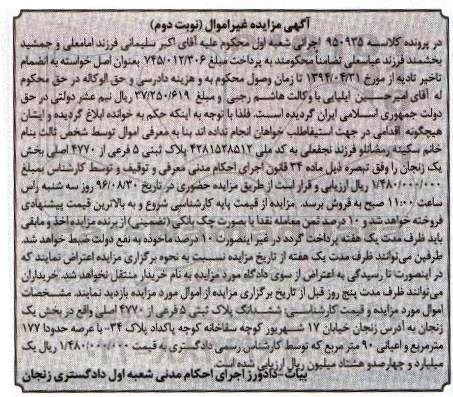 آگهی مزایده غیراموال (نوبت دوم)
در پرونده کلاسه ۹۵۰۹۳۵ اجرائی شعبه اول محکوم علیه آقای اکبر سلیمانی فرزند امامعلی و جمشید
بخشمند فرزند عباسعلی تضامناً محکومند به پرداخت مبلغ ۷۴۵/۰۱۲/۳۰۶ بعنوان اصل خواسته به انضمام
تاخیر تادیه از مورخ ۱۳۹۴/۰۴/۳۱ تا زمان وصول محکوم به و هزینه دادرسی و حق الوکاله در حق محکوم
له آقای امیرحسین ایلیایی با وکالت هاشم رجبی و مبلغ ۳۷/۲۵۰/۶۱۹ ریال نیم عشر دولتی در حق
دولت جمهوری اسلامی ایران گردیده است. فلذا با توجه به اینکه حکم به خوانده ابلاغ گردیده و ایشان
هیچگونه اقدامی در جهت استیفاطلب خواهان انجام نداده اند بنا به معرفی اموال توسط شخص ثالث بنام
خانم سکینه رمضانلو فرزند نجفعلی به کد ملی ۴۲۸۱۵۲۸۵۱۲ پلاک ثبتی ۵ فرعی از ۴۷۷۰ اصلی بخش
یک زنجان را وفق تبصره ذیل ماده ۳۴ قانون اجرای احکام مدنی معرفی و توقیف و توسط کارشناس بمبلغ
۱/۴۸۰/۰۰۰/۰۰۰ ریال ارزیابی و قرار است از طریق مزایده حضوری در تاریخ ۹۶/۰۸/۳۰ روز سه شنبه راس
ساعت ۱۱:۰۰ صبح به فروش برسد. مزایده از قیمت پایه کارشناسی شروع و به بالاترین قیمت پیشنهادی
فروخته خواهد شد و ۱۰ درصد ثمن معامله نقدا یا بصورت چک بانکی(تضمینی) از برنده مزایده اخذ و مابقی
باید ظرف مدت یک هفته پرداخت گردد در غیر اینصورت ۱۰ درصد ماخوذه به نفع دولت ضبط خواهد شد.
طرفین می‌توانند ظرف مدت یک هفته از تاریخ مزایده نسبت به نحوه برگزاری مزایده اعتراض نمایند که
در اینصورت تا رسیدگی به اعتراض از سوی دادگاه مورد مزایده به نام خریدار منتقل نخواهد شد. خریداران
می‌توانند ظرف مدت پنج روز قبل از تاریخ برگزاری مزایده از اموال مورد مزایده بازدید نمایند. مشخصات
اموال مورد مزایده و قیمت کارشناسی: ششدانگ پلاک ثبتی ۵ فرعی از ۴۷۷۰ اصلی واقع در بخش یک
زنجان به آدرس زنجان خیابان ۱۷ شهریور کوچه سقاخانه کوچه پاکداد پلاک ۳۴- با عرصه حدودا ۱۷۷
مترمربع و اعیانی ۹۰ متر مربع که توسط کارشناس رسمی دادگستری به قیمت ۱/۴۸۰/۰۰۰/۰۰۰ ریال یک
میلیارد و چهارصدو هشتاد میلیون ریال ارزیابی شده است.
بیات - دادورز اجرای احکام مدنی شعبه اول دادگستری زنجان